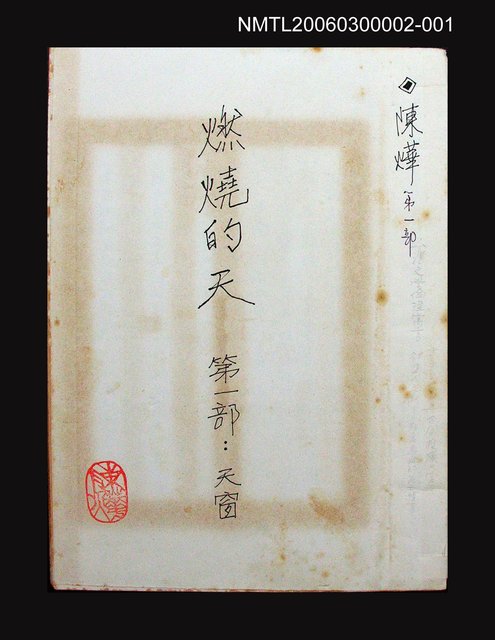 NMTL20060300002-001
陳燁 第一部
燃燒的天 第一部：天窗
陳燁